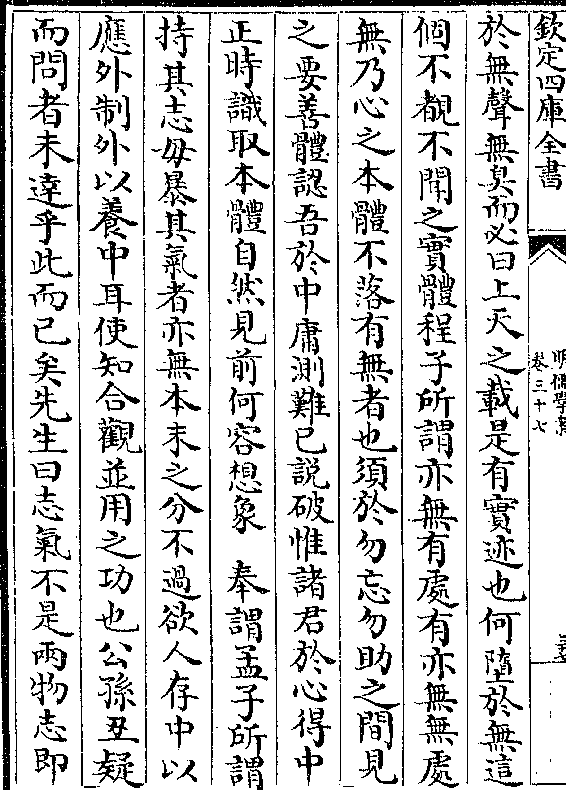 欽定四庫全書
明儒學案
卷三十七
於無聲無臭而必曰上天之載是有實迹也何墮於無這
個不覩不聞之實體程子所謂亦無有處有亦無無處
無乃心之本體不落有無者也須於勿忘勿助之間見
之要善體認吾於中庸測難已説破惟諸君於心得中
正時識取本體自然見前何容想象　奉謂孟子所謂
持其志毋暴其氣者亦無本末之分不過欲人存中以
應外制外以養中耳使知合觀並用之功也公孫丑疑
而問者未達乎此而已矣先生曰志氣不是兩物志即